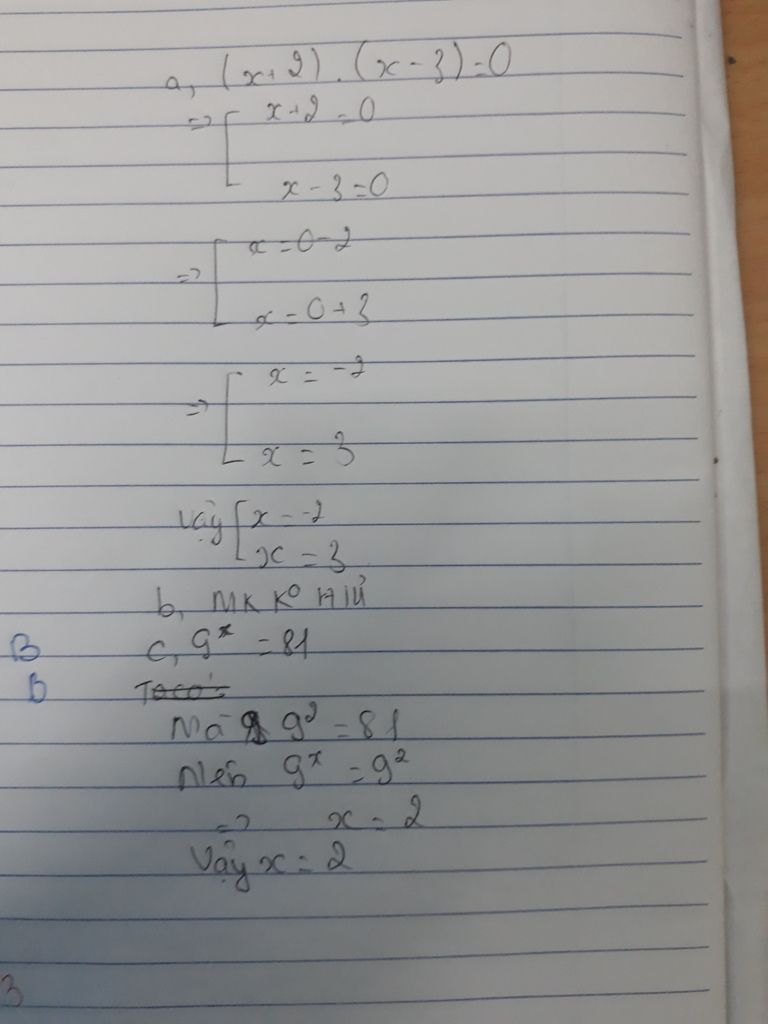 a, (x+2).(x-3)=0
=> [ x+2=0
x-3=0
=> [ x=0-2
x=0+3
=> [ x=-2
x=3
Vậy [ x=-2
x=3
b, MK Kº HIỂU
B
c, 9ˣ = 81
B
Ta có:
Mà 9² = 81
Nên 9ˣ = 9²
=> x = 2
Vậy x = 2
3